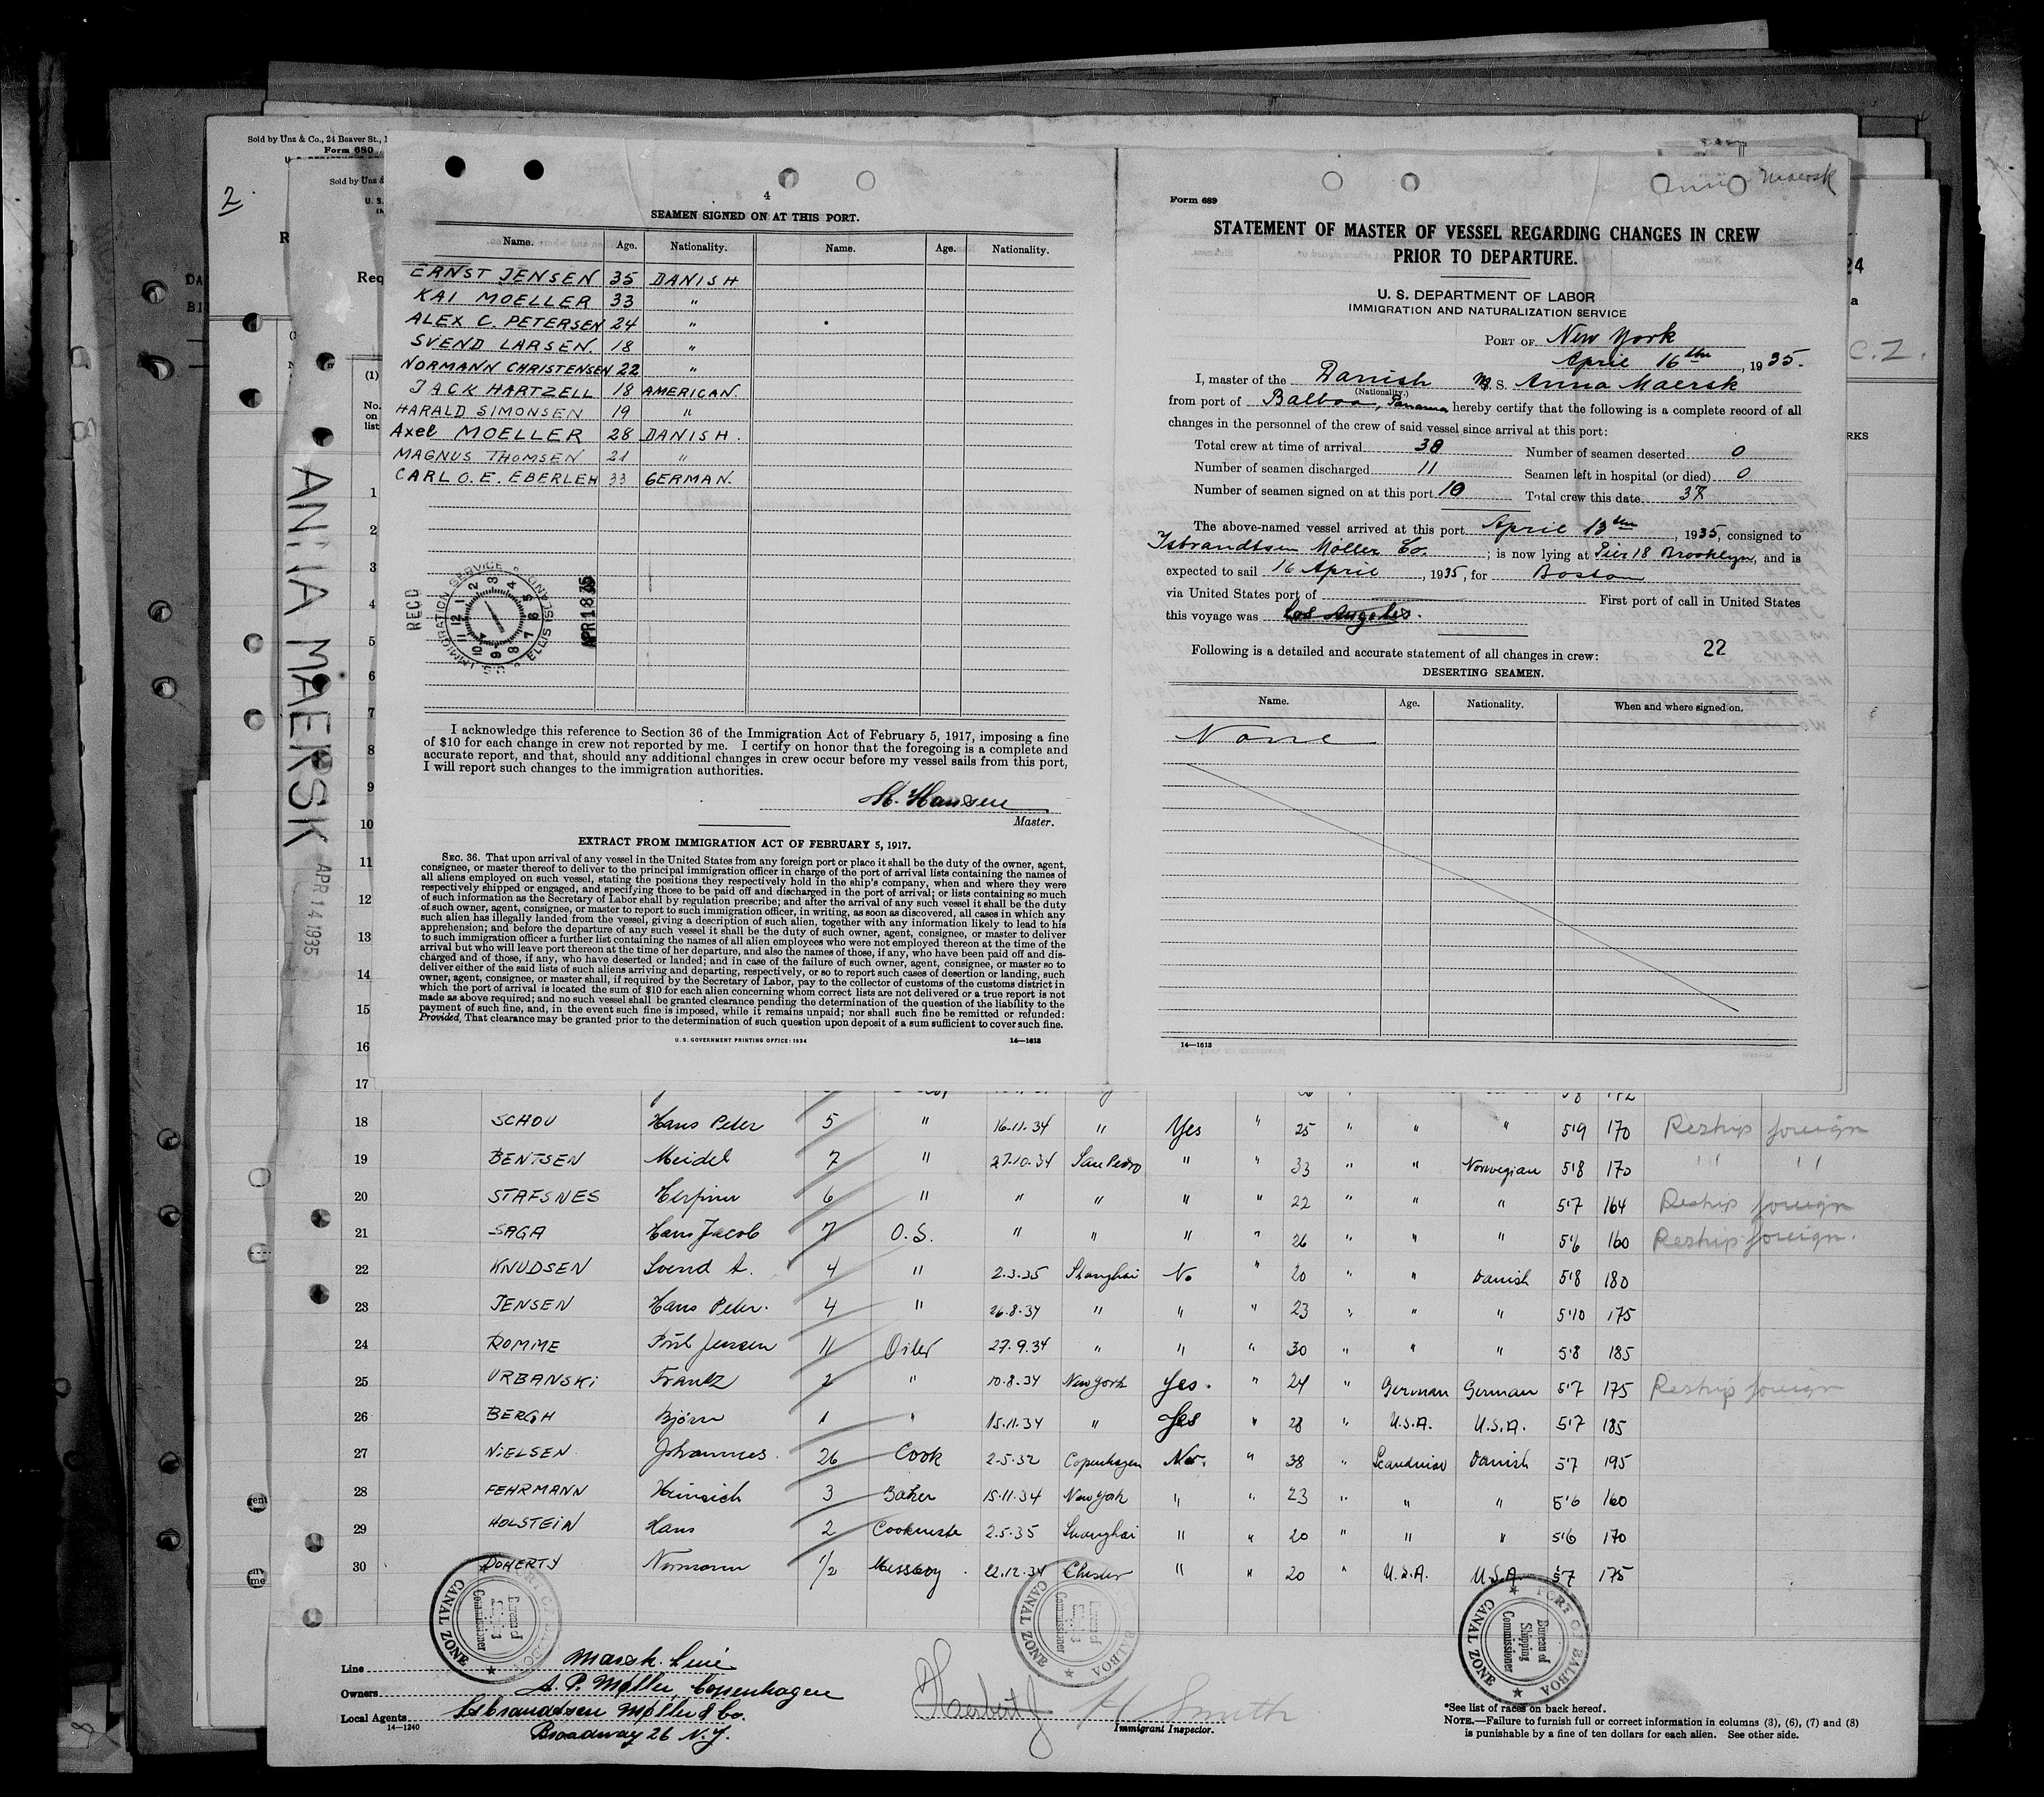 Sold by Unz & Co., 24 Beaver St.,
Form 680
Sold by Unz &
U. S.
2
Req
(1)
No.
on
list
ANNA MAERSK
APR 14 1935
4
SEAMEN SIGNED ON AT THIS PORT.
Name. Age. Nationality. Name. Age. Nationality.
ERNST JENSEN 35 DANISH
KAI MOELLER 33 "
ALEX C. PETERSEN 24 "
SVEND LARSEN. 18 "
NORMANN CHRISTENSEN 22 "
JACK HARTZELL 18 AMERICAN.
HARALD SIMONSEN 19 "
Axel MOELLER 28 DANISH.
MAGNUS THOMSEN 21 "
CARL O. E. EBERLEH 33 GERMAN.
RECD
U.S. IMMIGRATION SERVICE ELLIS ISLAND
APR 18 35
I acknowledge this reference to Section 36 of the Immigration Act of February 5, 1917, imposing a fine
of $10 for each change in crew not reported by me. I certify on honor that the foregoing is a complete and
accurate report, and that, should any additional changes in crew occur before my vessel sails from this port,
I will report such changes to the immigration authorities.
Hansen
Master.
EXTRACT FROM IMMIGRATION ACT OF FEBRUARY 5, 1917.
SEC. 36. That upon arrival of any vessel in the United States from any foreign port or place it shall be the duty of the owner, agent,
consignee, or master thereof to deliver to the principal immigration officer in charge of the port of arrival lists containing the names of
all aliens employed on such vessel, stating the positions they respectively hold in the ship's company, when and where they were
respectively shipped or engaged, and specifying those to be paid off and discharged in the port of arrival; or lists containing so much
of such information as the Secretary of Labor shall by regulation prescribe; and after the arrival of any such vessel it shall be the duty
of such owner, agent, consignee, or master to report to such immigration officer, in writing, as soon as discovered, all cases in which any
such alien has illegally landed from the vessel, giving a description of such alien, together with any information likely to lead to his
apprehension; and before the departure of any such vessel it shall be the duty of such owner, agent, consignee, or master to deliver
to such immigration officer a further list containing the names of all alien employees who were not employed thereon at the time of the
arrival but who will leave port thereon at the time of her departure, and also the names of those, if any, who have been paid off and dis-
charged and of those, if any, who have deserted or landed; and in case of the failure of such owner, agent, consignee, or master so to
deliver either of the said lists of such aliens arriving and departing, respectively, or so to report such cases of desertion or landing, such
owner, agent, consignee, or master shall, if required by the Secretary of Labor, pay to the collector of customs of the customs district in
which the port of arrival is located the sum of $10 for each alien concerning whom correct lists are not delivered or a true report is not
made as above required; and no such vessel shall be granted clearance pending the determination of the question of the liability to the
payment of such fine, and, in the event such fine is imposed, while it remains unpaid; nor shall such fine be remitted or refunded:
Provided, That clearance may be granted prior to the determination of such question upon deposit of a sum sufficient to cover such fine.
U. S. GOVERNMENT PRINTING OFFICE: 1934 14—1613
Maersk
Form 689
STATEMENT OF MASTER OF VESSEL REGARDING CHANGES IN CREW
PRIOR TO DEPARTURE.
U. S. DEPARTMENT OF LABOR
IMMIGRATION AND NATURALIZATION SERVICE
PORT OF New York
April 16th, 1935.
I, master of the Danish M S. Anna Maersk
(Nationality.)
from port of Balboa, Panama, hereby certify that the following is a complete record of all
changes in the personnel of the crew of said vessel since arrival at this port:
Total crew at time of arrival 38 Number of seamen deserted 0
Number of seamen discharged 11 Seamen left in hospital (or died) 0
Number of seamen signed on at this port 10 Total crew this date 37
The above-named vessel arrived at this port April 13th, 1935, consigned to
Isbrandtsen Möller Co. ; is now lying at Pier 18 Brooklyn, and is
expected to sail 16 April, 1935, for Boston
via United States port of First port of call in United States
this voyage was Los Angeles.
Following is a detailed and accurate statement of all changes in crew: 22
DESERTING SEAMEN.
Name. Age. Nationality. When and where signed on.
None
14—1613
C.Z.
RKS
1
2
3
4
5
6
7
8
9
10
11
12
13
14
15
16
17
18 SCHOU Hans Peter 5 " 16-11-34 " Yes " 25 " " " 5'9 170 Reship foreign
19 BENTSEN Meidel 7 " 27-10-34 San Pedro " " 33 " " Norwegian 5'8 170 " "
20 STAFSNES 6 " " " " " 22 " " " 5'7 164 Reship foreign
21 SAGA Hans Jacob 7 O.S. " " " " 26 " " " 5'6 160 Reship foreign.
22 KNUDSEN Svend A. 4 " 2-3-35 Shanghai No " 20 " " Danish 5'8 180
23 JENSEN Hans Peter. 4 " 26-8-34 " " " 23 " " " 5'10 175
24 ROMME Jensen 11 Oiler 27-9-34 " " " 30 " " " 5'8 185
25 URBANSKi Frantz 2 " 10-8-34 New York Yes. " 24 " German German 5'7 175 Reship foreign
26 BERGH Björn 1 " 15-11-34 " Yes " 28 " U.S.A. U.S.A. 5'7 185
27 NiELSEN Johannes. 26 Cook 2-5-32 Copenhagen No. " 38 " Danish 5'7 195
28 FEHRMANN Heinrich 3 Baker 15-11-34 New York " " 23 " " " 5'6 160
29 HOLSTEiN Hans 2 2-5-35 Shanghai " " 20 " " " 5'6 170
30 DOHERTY Normann 1/2 Messboy 22-12-34 Chester " " 20 " U.S.A. U.S.A. 5'7 175
PORT OF BALBOA CANAL ZONE Bureau of Shipping Commissioner
PORT OF BALBOA CANAL ZONE Bureau of Shipping Commissioner
PORT OF BALBOA CANAL ZONE Bureau of Shipping Commissioner
Line Maersk Line
Owners A. P. Møller, Copenhagen
Local Agents Isbrandtsen Møller Co.
14—1240
Broadway 26 N.Y.
Herbert J H Smith
Immigrant Inspector.
*See list of races on back hereof.
NOTE.—Failure to furnish full or correct information in columns (3), (6), (7) and (8)
is punishable by a fine of ten dollars for each alien. See other side.